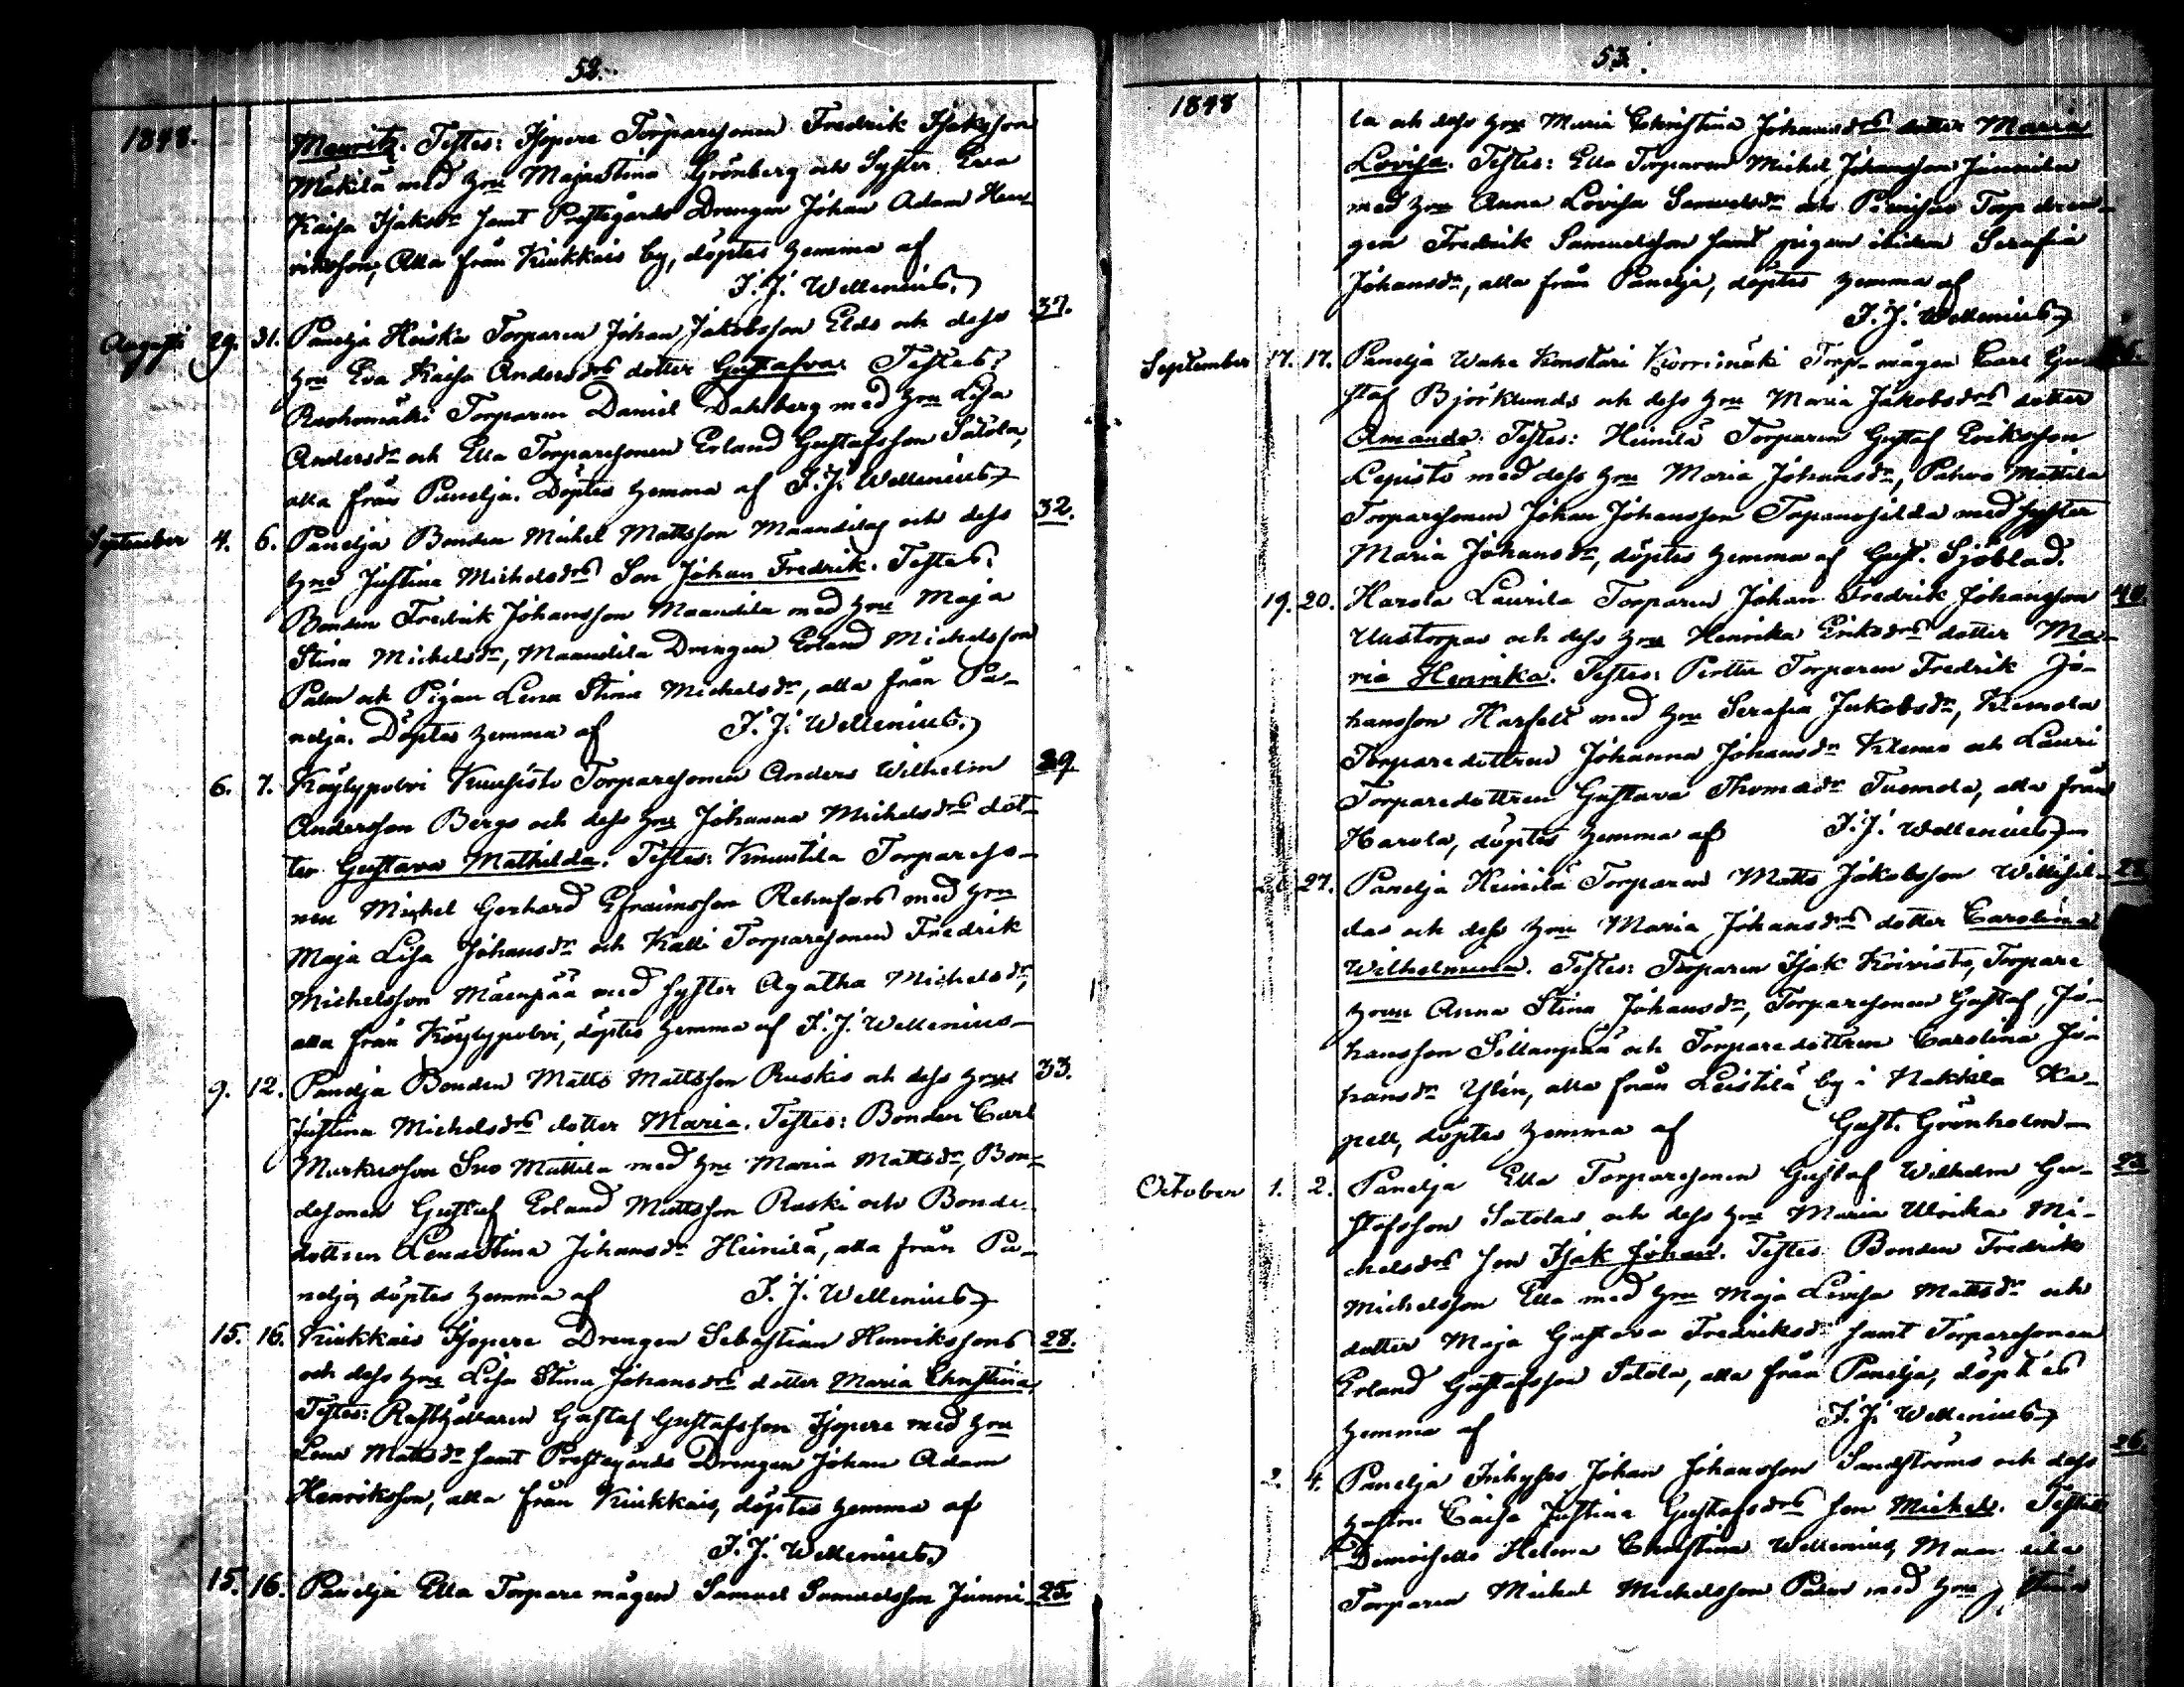 52.
1848.
Mauritz. Testes: Isopere Torparesonen Fredrik Isaksson
Mäkilä med hru Maja Stina Grönberg och Syster Eva
Kaisa Isaksdr samt Prestegårds Drengen Johan Adam Hen-
riksson, Alla från Kiukkais by, döptes hemma af
I. J. Wellenius.
Augusti 29. 31. Panelja Heiska Torparen Johan Jakobsson Elds och dess 37.
hru Eva Kaisa Andersdrs dotter Gustafva. Testes:
Torparen Daniel Dahlberg med hru Lisa
Andersdr och Ella Torparesonen Erland Gustafsson Satola,
alla från Panelja. Döptes hemma af I. J. Wellenius
September 4. 6. Panelja Bonden Michel Mattsson Maandilas och dess 32.
hrus Justina Michelsdrs Son Johan Fredrik. Testes:
Bonden Fredrik Johansson Maandila med hru Maja
Stina Michelsdr, Maandila Drengen Erland Michelsson
Palm och Pigan Lena Stina Michelsdr, alla från Pa-
nelja. Döptes hemma af I. J. Wellenius.
6. 7. Köylypolvi Kuusisto Torparesonen Anders Wilhelm 29
Andersson Bergs och dess hru Johanna Michelsdrs dot-
ter Gustava Mathilda. Testes: Knuutila Torpareso-
nen Michel Gerhard Efraimsson Rehnfors med hru
Maja Lisa Johansdr och Kalli Torparesonen Fredrik
Michelsson Mäenpää med syster Agatha Michelsdr,
alla från Köylypolvi, döptes hemma af I. J. Wellenius
9. 12. Panelja Bonden Matts Mattsson Ruskis och dess hrus 33.
Justina Michelsdrs dotter Maria. Testes: Bonden Carl
Markusson Suo Mattila med hru Maria Mattsdr, Bon-
desonen Gustaf Erland Mattsson Ruski och Bonde-
dottren Lena Stina Johansdr Heinilä, alla från Pa-
nelja, döptes hemma af I. J. Wellenius
15. 16. Kiukkais Isopere Drengen Sebastian Henrikssons 28.
och dess hru Lisa Stina Johansdrs dotter Maria Christina
Testes: Rusthållaren Gustaf Gustafsson Isopere med hru
Lena Mattsdr samt Prestegårds Drengen Johan Adam
Henriksson, alla från Kiukkais, döptes hemma af
I. J. Wellenius.
15. 16. Panelja Ella Torpare mågen Samuel Samuelsson Junni- 25.
53.
1848
la och dess hru Maria Christina Johansdrs dotter Maria
Lovisa. Testes: Ella Torparen Michel Johansson Junnila
med hru Anna Lovisa Samuelsdr och Torp dren-
gen Fredrik Samuelsson samt pigan ibidem Serafia
Johansdr, alla från Panelja, döptes hemma af
I. J. Wellenius
September 17. 17. Panelja Wähä Konstari Korrimäki Torp. mågen Carl Gu-
staf Björklunds och dess hru Maria Jakobsdrs dotter
Amanda. Testes: Heinilä Torparen Gustaf Eriksson
Lepistö med dess hru Maria Johansdr, Pahvo Mattila
Torparesonen Johan Johansson Torpansilda med syster
Maria Johansdr, döptes hemma af Gust. Sjöblad.
19. 20. Harola Laurila Torparen Johan Fredrik Johansson 40.
Uustorpas och dess hru Henrika Eriksdrs dotter Ma-
ria Henrika. Testes: Pertter Torparen Fredrik Jo-
hansson Harfelt med hru Serafia Jakobsdr, Klemola
Torparedottren Johanna Johansdr Klemo och Lauri
Torparedottren Gustava Thomasdr Tuomola, alla från
Harola, döptes hemma af I. J. Wellenius
27. Panelja Heinilä Torparen Matts Jakobsson Willisil-
das och dess hru Maria Johansdrs dotter Carolina
Wilhelmina. Testes: Torparen Isak Koivisto, Torpare
hrun Anna Stina Johansdr, Torparesonen Gustaf Jo-
hansson Sillanpää och Torparedottren Carolina Jo-
hansdr Ylin, alla från Leistilä by i Nakkila Ka-
pell, döptes hemma af Gust. Grönholm
October 1. 2. Panelja Ella Torparesonen Gustaf Wilhelm Gu- 23.
stafsson Satolas och dess hru Maria Ulrika Mi-
chelsdrs son Isak Johan. Testes: Bonden Fredrik
Michelsson Ella med hru Maja Lovisa Mattsdr och
dotter Maja Gustava Fredriksdr samt Torparesonen
Erland Gustafsson Satola, alla från Panelja, döptes
hemma af I. J. Wellenius
2. 4. Panelja Inhyses Johan Johansson Sandströms och dess 26.
hustru Caisa Justina Gustafsdrs son Michel. Testes
Demoiselle Helena Christina Wellenius, Maandila
Torparen Michel Michelsson Palm med hru Stina